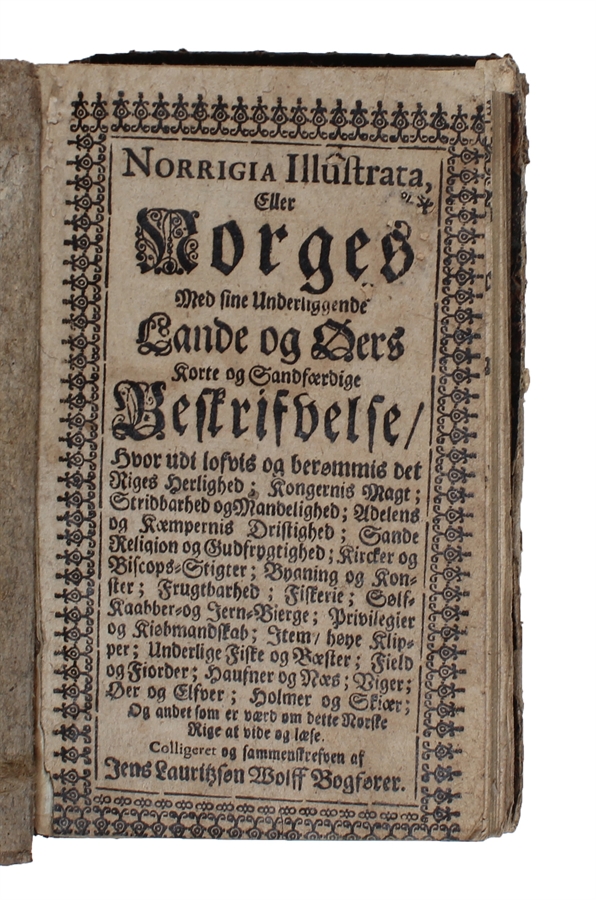 NORRIGIA Illûstrata,
Eller
Norges
Med sine Underliggende
Lande og Øers
Korte og Sandfærdige
Beskrifvelse/
Hvor udi lofvis og berømmis det
Riges Herlighed; Kongernis Magt;
Stridbarhed og Mandelighed; Adelens
og Kæmpernis Dristighed; Sande
Religion og Gudfrygtighed; Kircker og
Biscops-Stigter; Bygning og Kon-
ster; Frugtbarhed; Fiskerie; Sølf-
Kaabber-og Jern-Bierge; Privilegier
og Kiøbmandskab; Item/ høye Klip-
per; Underlige Fiske og Bæster; Field
og Fiorder; Haufner og Næs; Viger;
Øer og Elfver; Holmer og Skiær;
Og andet som er værd om dette Norske
Rige at vide og læse.
Colligeret og sammenskrefven af
Jens Lauritzsøn Wolff Bogfører.